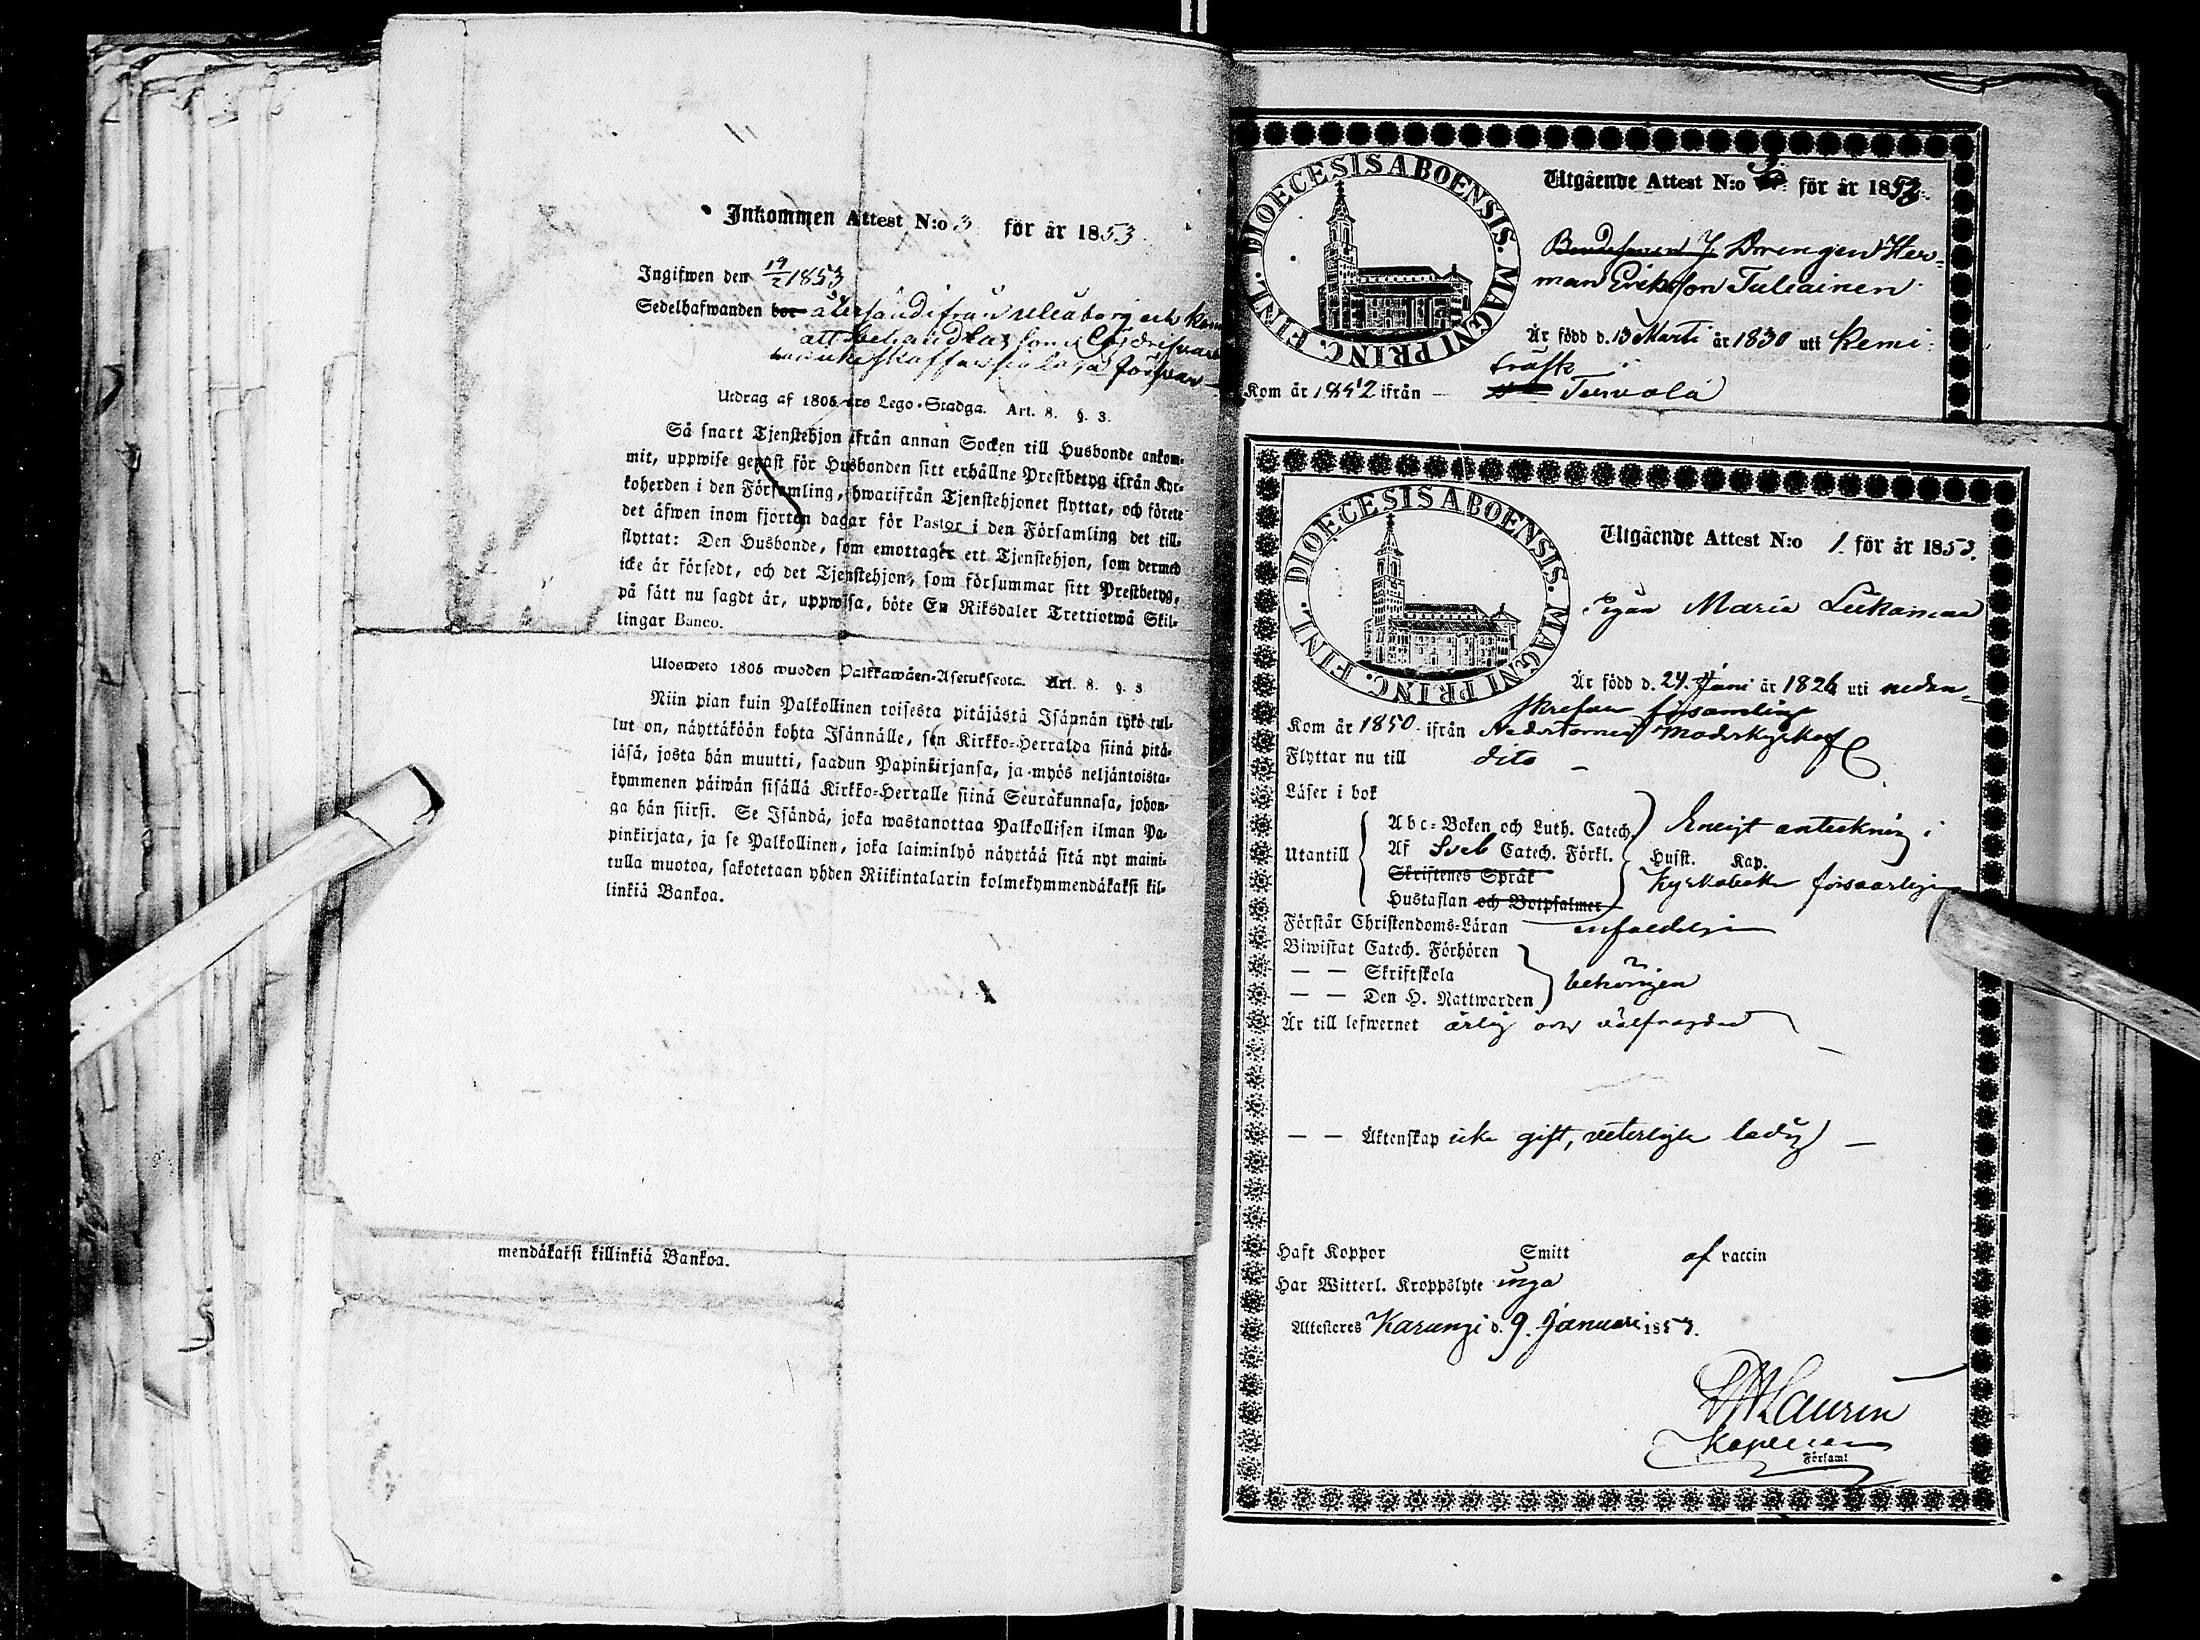 Inkommen Attest N:o 3 för år 1853
Ingifwen den 19/2 1853
Sedelhafwanden bor återsänd ifrån Uleåborg och Kemi
att behandlas som
Utdrag af 1805 års Lego-Stadga. Art. 8. §. 3.
Så snart Tjenstehjon ifrån annan Socken till Husbonde ankom-
mit, uppwise genast för Husbonden sitt erhållne Prestbetyg ifrån Kyr-
koherden i den Församling, hwarifrån Tjenstehjonet flyttat, och förete
det äfwen inom fjorton dagar för Pastor i den Församling det till-
flyttat: Den Husbonde, som emottager ett Tjenstehjon, som dermed
icke är försedt, och det Tjenstehjon, som försummar sitt Prestbetyg,
på sätt nu sagdt är, uppwisa, böte En Riksdaler Trettiotwå Skil-
lingar Banco.
Ulosweto 1805 wuoden Palkkawäen-Asetuksesta. Art. 8. §. 3
Niin pian kuin Palkollinen toisesta pitäjästä Isännän tykö tul-
lut on, näyttäköön kohta Isännälle, sen Kirkko-Herralda siinä pitä-
jäsä, josta hän muutti, saadun Papinkirjansa, ja myös neljäntoista-
kymmenen päiwän sisällä Kirkko-Herralle siinä Seurakunnasa, johon-
ga hän siirsi. Se Isändä, joka wastanottaa Palkollisen ilman Pa-
pinkirjata, ja se Palkollinen, joka laiminlyö näyttää sitä nyt maini-
tulla muotoa, sakotetaan yhden Riikintalarin kolmekymmendäkaksi kil-
linkiä Bankoa.
mendäkaksi killinkiä Bankoa.
DIOECESIS ABOENSIS. MAGNI PRINC. FINL.
Utgående Attest N:o 3. för år 1853.
Drengen Her-
man Eriksson Tuliainen
Är född d. 13 Marti år 1830 uti Kemi
träsk
Kom år 1852 ifrån Tervola
DIOECESIS ABOENSIS. MAGNI PRINC. FINL.
Utgående Attest N:o 1. för år 1853.
Pigan Maria Liikamaa
Är född d. 24. Juni år 1826 uti nedan-
skrefne församling
Kom år 1850 ifrån Nedertorneå Moderkyrka
Flyttar nu till dito
Läser i bok
Utantill
Abc-Boken och Luth. Catech.
Af Sveb Catech. Förkl.
Skriftenes Språk
Hustaflan och Botpsalmer
Enligt anteckning i
Husst. Kap.
Kyrkoboken försvarligen
Förstår Christendoms-Läran enfaldeligen
Biwistat Catech. Förhören
— — Skriftskola
— — Den H. Nattwarden
behörigen
Är till lefwernet ärlig och välfrägdad
— — Äktenskap icke gift, veterligen ledig —
Haft Koppor Smitt af vaccin
Har Witterl. Kroppslyte inga
Attesteres Karungi d. 9. Januari 1853.
Laurin
Kapellan
Församl